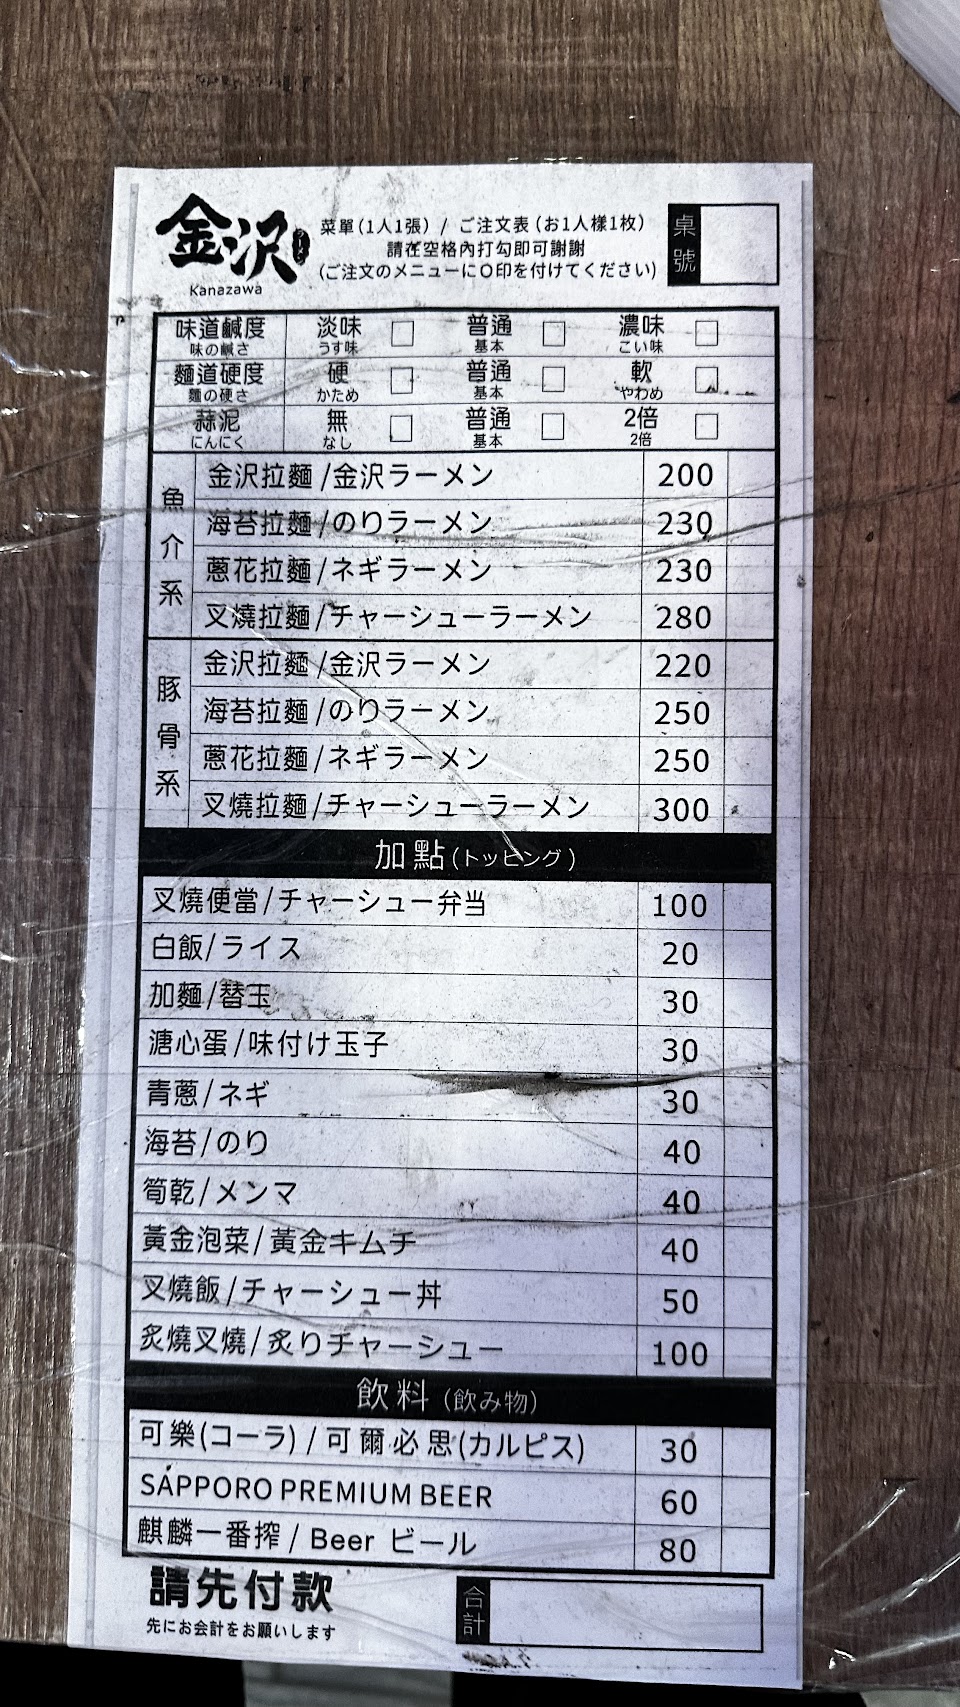 金沢
ラーメン
Kanazawa
菜單(1人1張) / ご注文表(お1人樣1枚)
請在空格內打勾即可謝謝
(ご注文のメニューにO印を付けてください)
桌號
味道鹹度 淡味 □ 普通 □ 濃味 □
味の鹹さ うす味 基本 こい味
麵道硬度 硬 □ 普通 □ 軟 □
麵の硬さ かため 基本 やわめ
蒜泥 無 □ 普通 □ 2倍 □
にんにく なし 基本 2倍
魚介系
金沢拉麵/金沢ラーメン 200
海苔拉麵/のりラーメン 230
蔥花拉麵/ネギラーメン 230
叉燒拉麵/チャーシューラーメン 280
豚骨系
金沢拉麵/金沢ラーメン 220
海苔拉麵/のりラーメン 250
蔥花拉麵/ネギラーメン 250
叉燒拉麵/チャーシューラーメン 300
加點(トッピング)
叉燒便當/チャーシュー弁当 100
白飯/ライス 20
加麵/替玉 30
溏心蛋/味付け玉子 30
青蔥/ネギ 30
海苔/のり 40
筍乾/メンマ 40
黃金泡菜/黃金キムチ 40
叉燒飯/チャーシュー丼 50
炙燒叉燒/炙りチャーシュー 100
飲料(飲み物)
可樂(コーラ)/可爾必思(カルピス) 30
SAPPORO PREMIUM BEER 60
麒麟一番搾/Beer ビール 80
請先付款
先にお会計をお願いします
合計